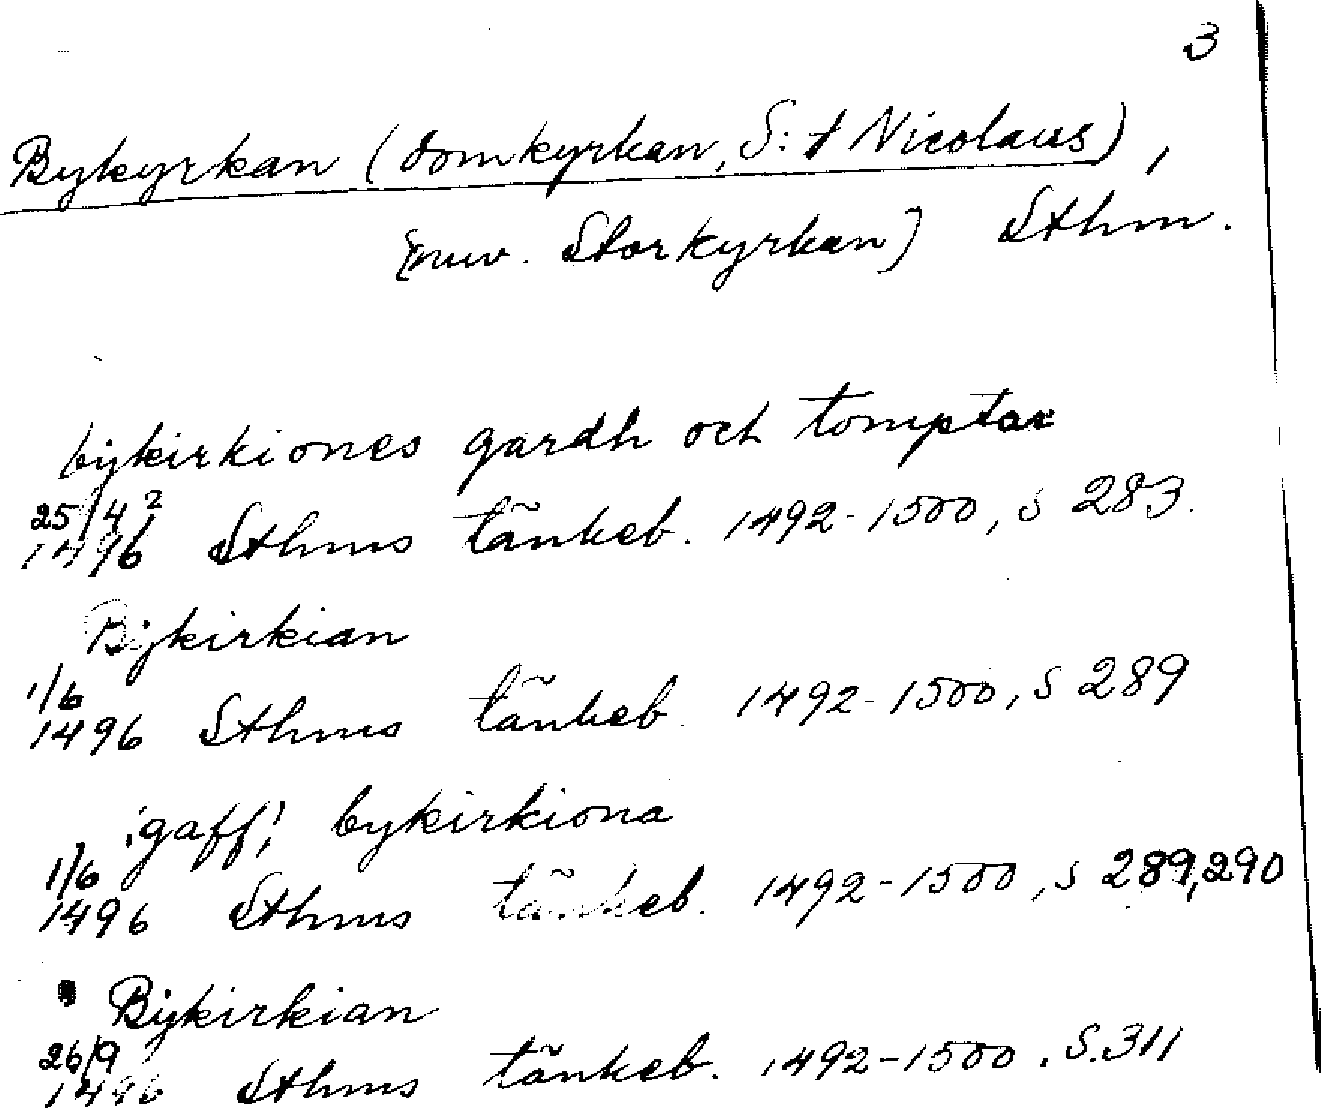 3
Bykyrkan (domkyrkan, S:t Nicolaus),
(nuv. Storkyrkan) Sthm.
bÿkirkiones gardh och tomptar
25/4 2
1496 Sthms tänkeb. 1492-1500, s 283.
Bÿkirkian
1/6
1496 Sthms tänkeb. 1492-1500, s 289
gaff, bykirkiona
1/6
1496 Sthms tänkeb. 1492-1500, s 289, 290
Bÿkirkian
26/9
1496 Sthms tänkeb. 1492-1500. S.311